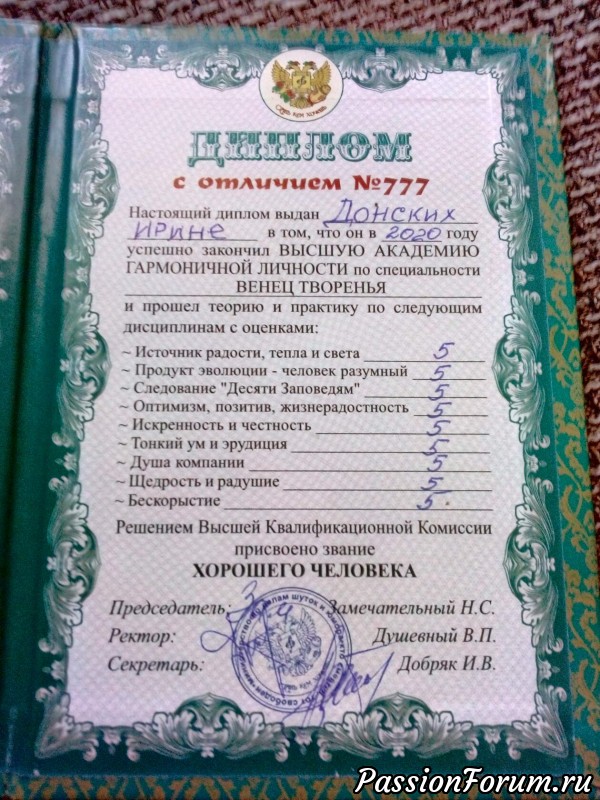 ДИПЛОМ
с отличием №777
Настоящий диплом выдан Донских
Ирине в том, что он в 2020 году
успешно закончил ВЫСШУЮ АКАДЕМИЮ
ГАРМОНИЧНОЙ ЛИЧНОСТИ по специальности
ВЕНЕЦ ТВОРЕНЬЯ
и прошел теорию и практику по следующим
дисциплинам с оценками:
~ Источник радости, тепла и света 5
~ Продукт эволюции - человек разумный 5
~ Следование "Десяти Заповедям" 5
~ Оптимизм, позитив, жизнерадостность 5
~ Искренность и честность 5
~ Тонкий ум и эрудиция 5
~ Душа компании 5
~ Щедрость и радушие 5
~ Бескорыстие 5
Решением Высшей Квалификационной Комиссии
присвоено звание
ХОРОШЕГО ЧЕЛОВЕКА
Председатель: Замечательный Н.С.
Ректор: Душевный В.П.
Секретарь: Добряк И.В.
PassionForum.ru